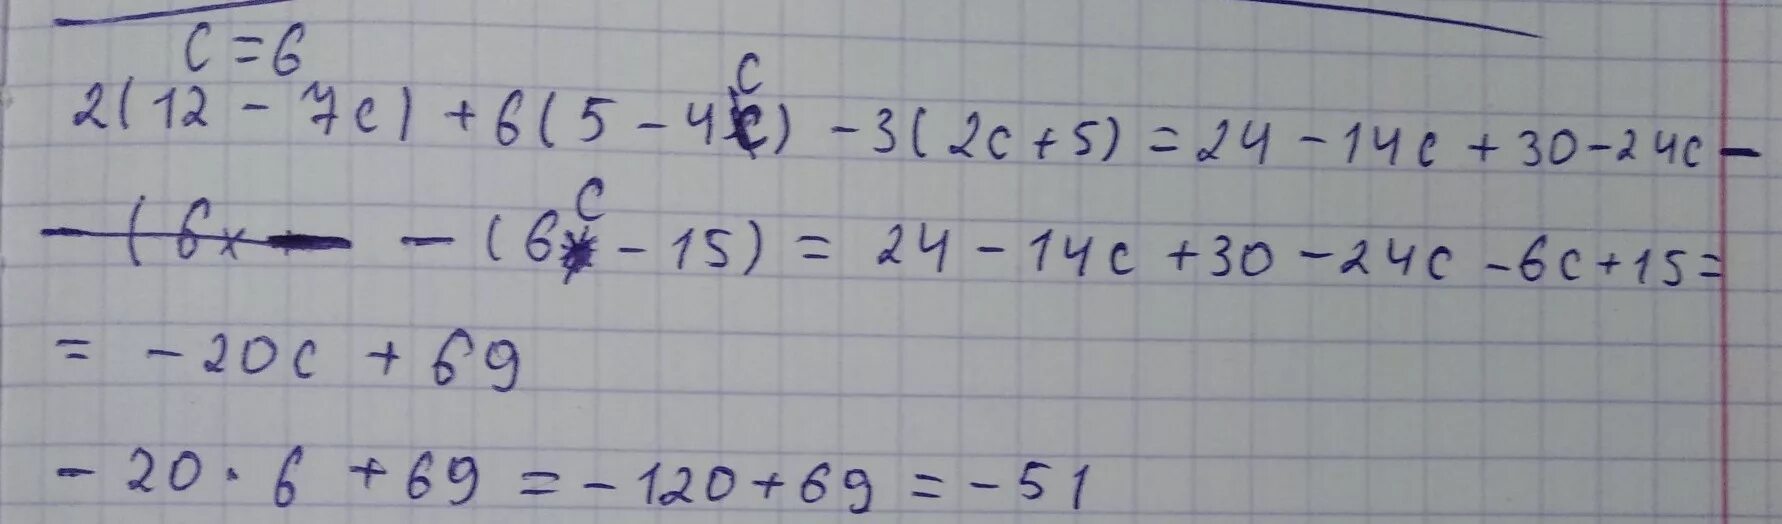 c = 6
2(12 - 7c) + 6(5 - 4c) - 3(2c + 5) = 24 - 14c + 30 - 24c -
- (6x - (6c - 15) = 24 - 14c + 30 - 24c - 6c + 15 =
= - 20c + 69
- 20 · 6 + 69 = - 120 + 69 = - 51